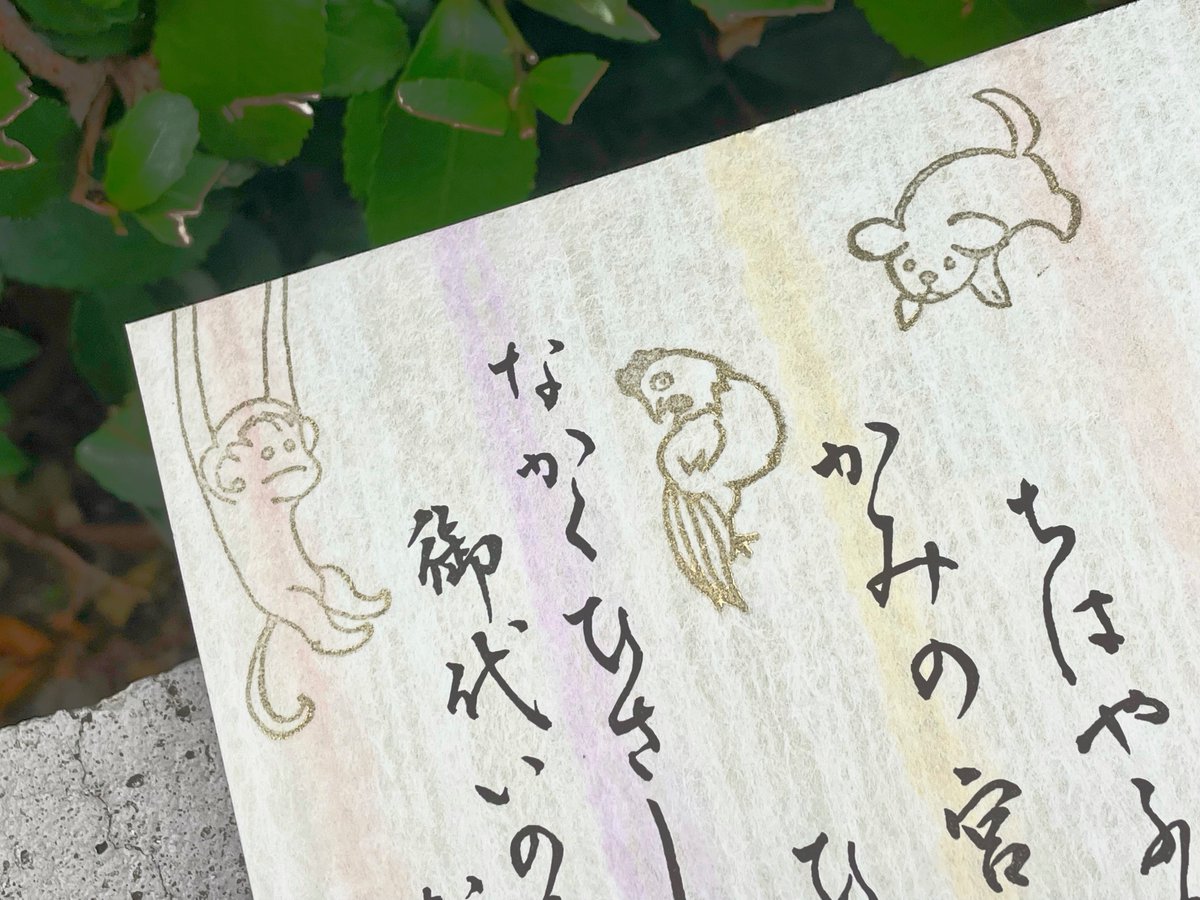 ちはやふ
かみの宮
ひ
なかくひさし
御代いの